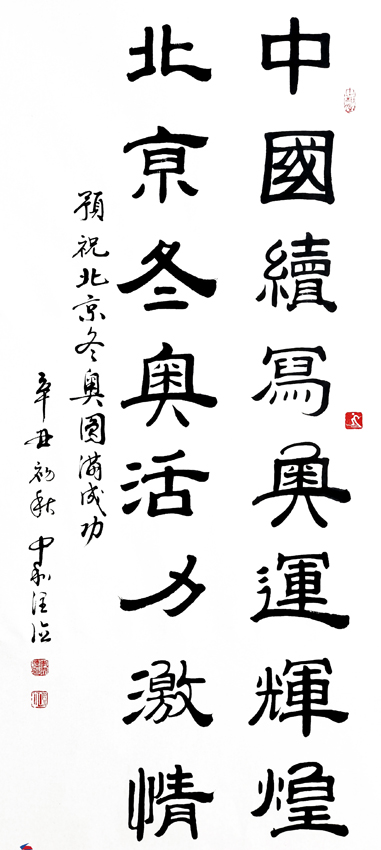 中國續寫奧運輝煌
北京冬奧活力激情
預祝北京冬奧圓滿成功
辛丑初秋中和